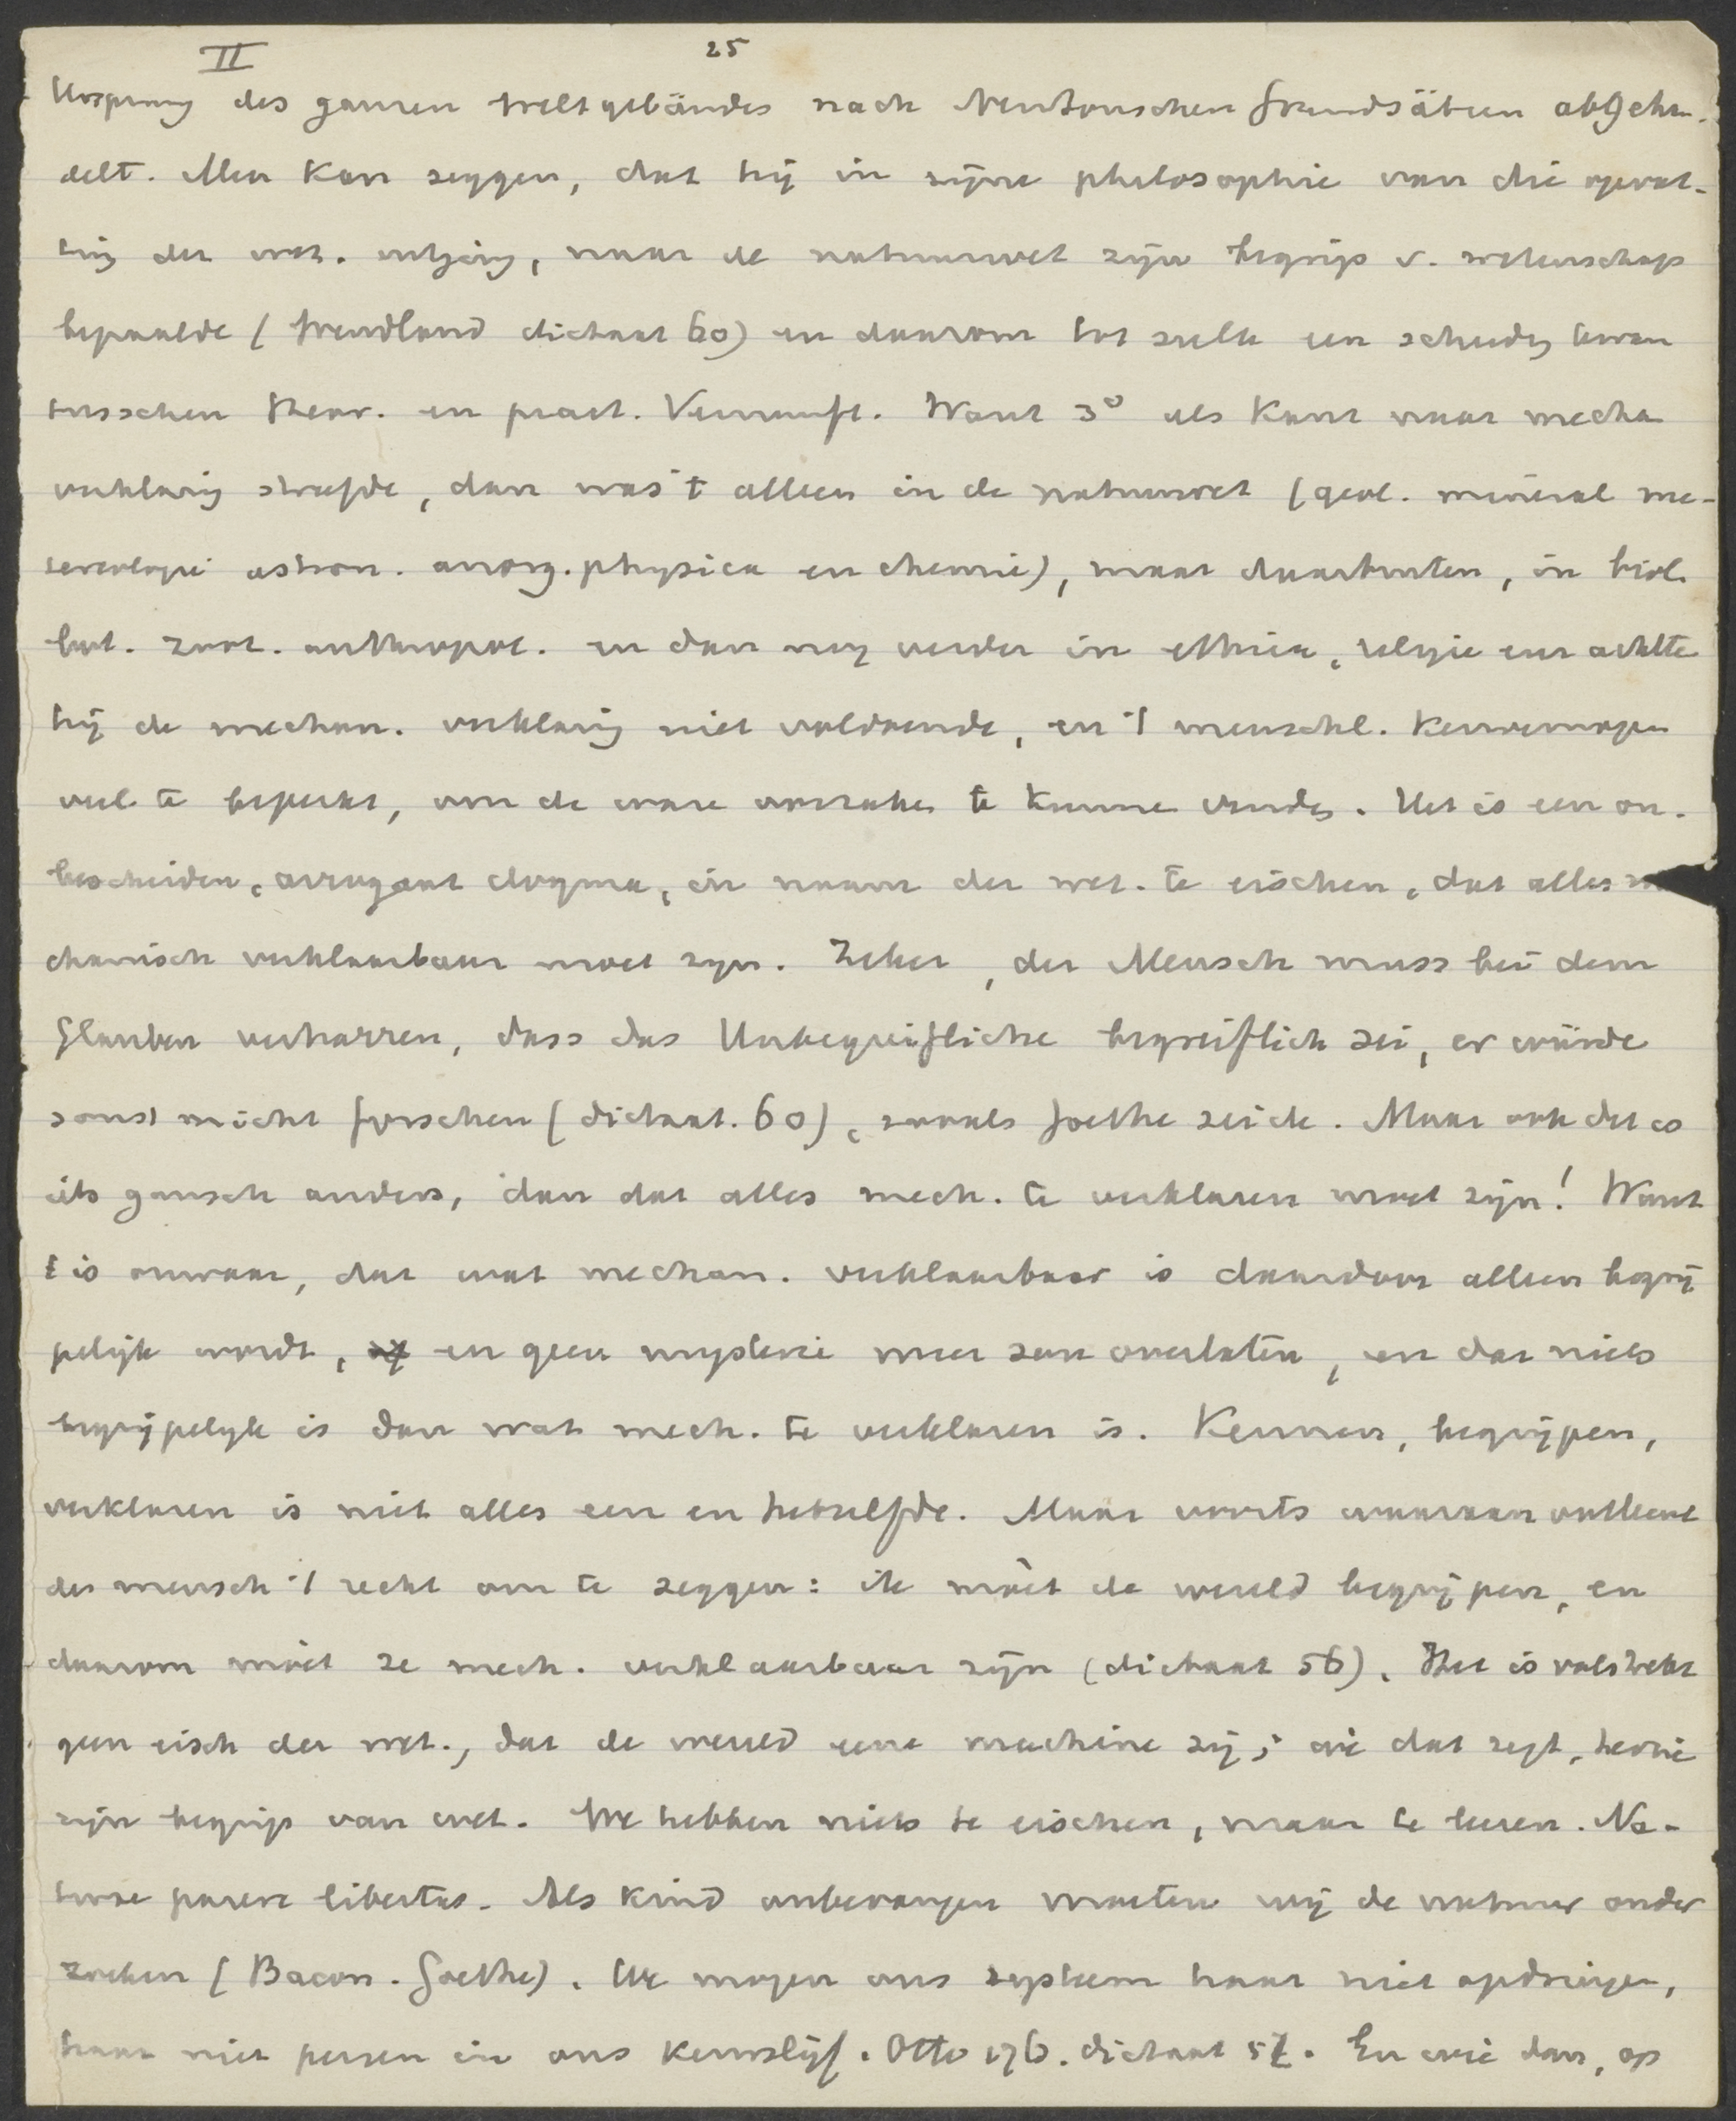 II 25
Ursprung des ganzen Weltgebäudes nach Newtonschen Grundsätzen abgehan-
delt. Men kan zeggen, dat hij in zijne philosophie van die opvat-
ting der wet. uitging, naar de natuurwet zijn begrip v. wetenschap
bepaalde (Wendland dictaat 60) en daarom tot zulk een scheidg kwam
tusschen theor. en pract. Vernunft. Want 3° als Kant naar mecha
verklaring streefde, dan was 't alleen in de natuurwet (geol. mineral me-
teorologie astron. anorg. physica en chemie), maar daarbuiten, in biol.
bot. zool. anthropol. en dan nog verder in ethica, religie enz achtte
hij de mechan. verklaring niet voldoende, en 't menschl. kenvermogen
veel te beperkt, om de ware oorzaken te kunnen vinden. Het is een on-
bescheiden, arrogant dogma, in naam der wet. te eischen, dat alles me
chanisch verklaarbaar moet zijn. Zeker, der Mensch muss bei dem
Glauben verharren, dass das Unbegreifliche begreiflich sei, er würde
sonst nicht forschen (dictaat. 60), zooals Goethe zeide. Maar ook dit is
iets gansch anders, dan dat alles mech. te verklaren moet zijn! Want
t is onwaar, dat wat mechan. verklaarbaar is daardoor alleen begrij
pelijk wordt, en geen mysterie meer zou overlaten, en dat niets
begrijpelijk is dan wat mech. te verklaren is. Kennen, begrijpen,
verklaren is niet alles een en hetzelfde. Maar voorts waaraan ontleent
de mensch 't recht om te zeggen: ik móet de wereld begrijpen, en
daarom móet ze mech. verklaarbaar zijn (dictaat 56). Het is volstrekt
geen eisch der wet., dat de wereld eene machine zij; wie dat zegt, herzie
zijn begrip van wet. We hebben niets te eischen, maar te leeren. Na-
turae parere libertas. Als kind onbevangen moeten wij de natuur onder
zoeken (Bacon. Goethe). We mogen ons systeem haar niet opdringen,
haar niet persen in ons keurslijf. Otto 176. dictaat 57. En wie dan, op